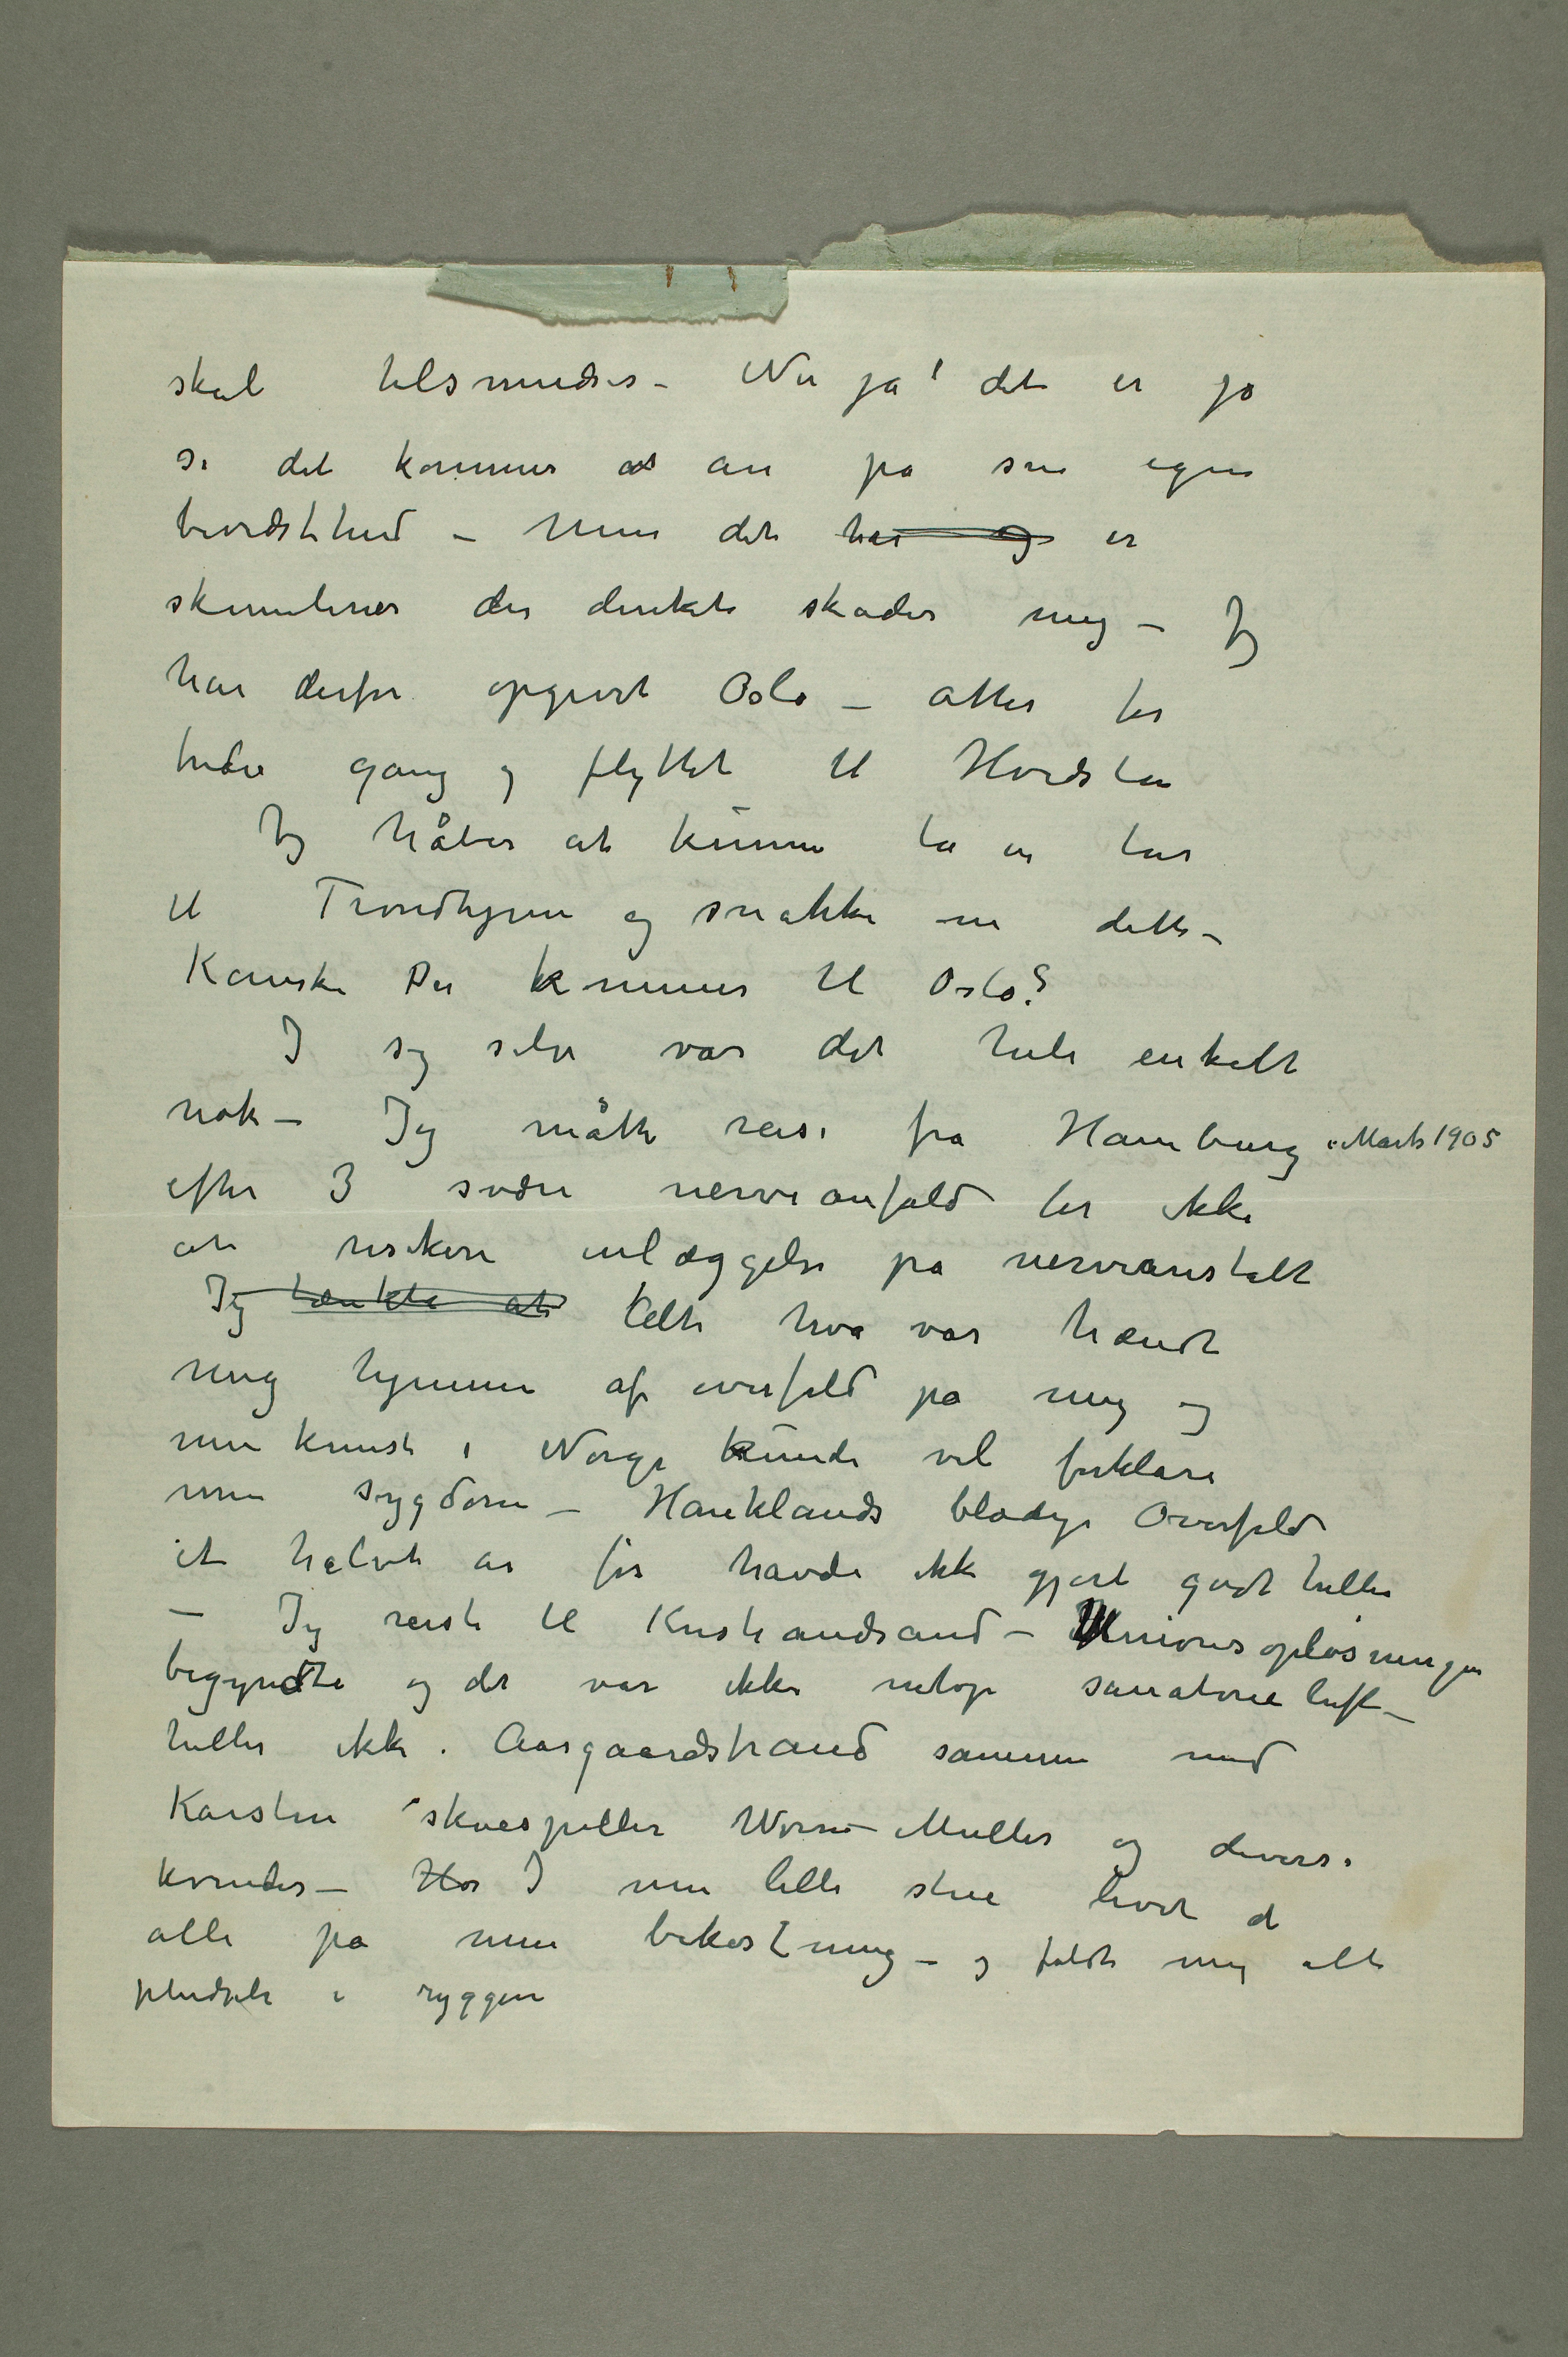 skal tilsmudses – Nu ja! det er jo
så det kommer at an på sin egen
bevidsthed – Men det har og er
skumlerier der direkte skader mig – Jeg
har derfor opgivet Oslo – atter for
tredie gang og flyttet til Hvidsten
Jeg håber at kunne ta en tur
til Trondhjem og snakke om dette –
Kanske Du kommer til Oslo?
I sig selv var det hele enkelt
nok – Jeg måtte reise fra Hamburg i Marts 1905
efter 3 svære nerveanfald for ikke
at risikere inlæggelse på nerveanstalt
Jeg tænkte at talte hva var hændt
mig hjemme af overfald på mig og
min kunst i Norge kunde vel forklare
min sygdom – Hauklands blodige Overfald
et halvt år før havde ikke gjort godt heller
– Jeg reiste til Kristiandsand – Unionsopløsningen
begyndte og det var ikke netop sanatorieluft –
heller ikke i Aasgaardstrand sammen med
Karsten skuespiller Worm-Muller og diverse
kvinder – Har I min lille stue levet de
alle på min bekostning – og faldt mig alle
pludseli i ryggen